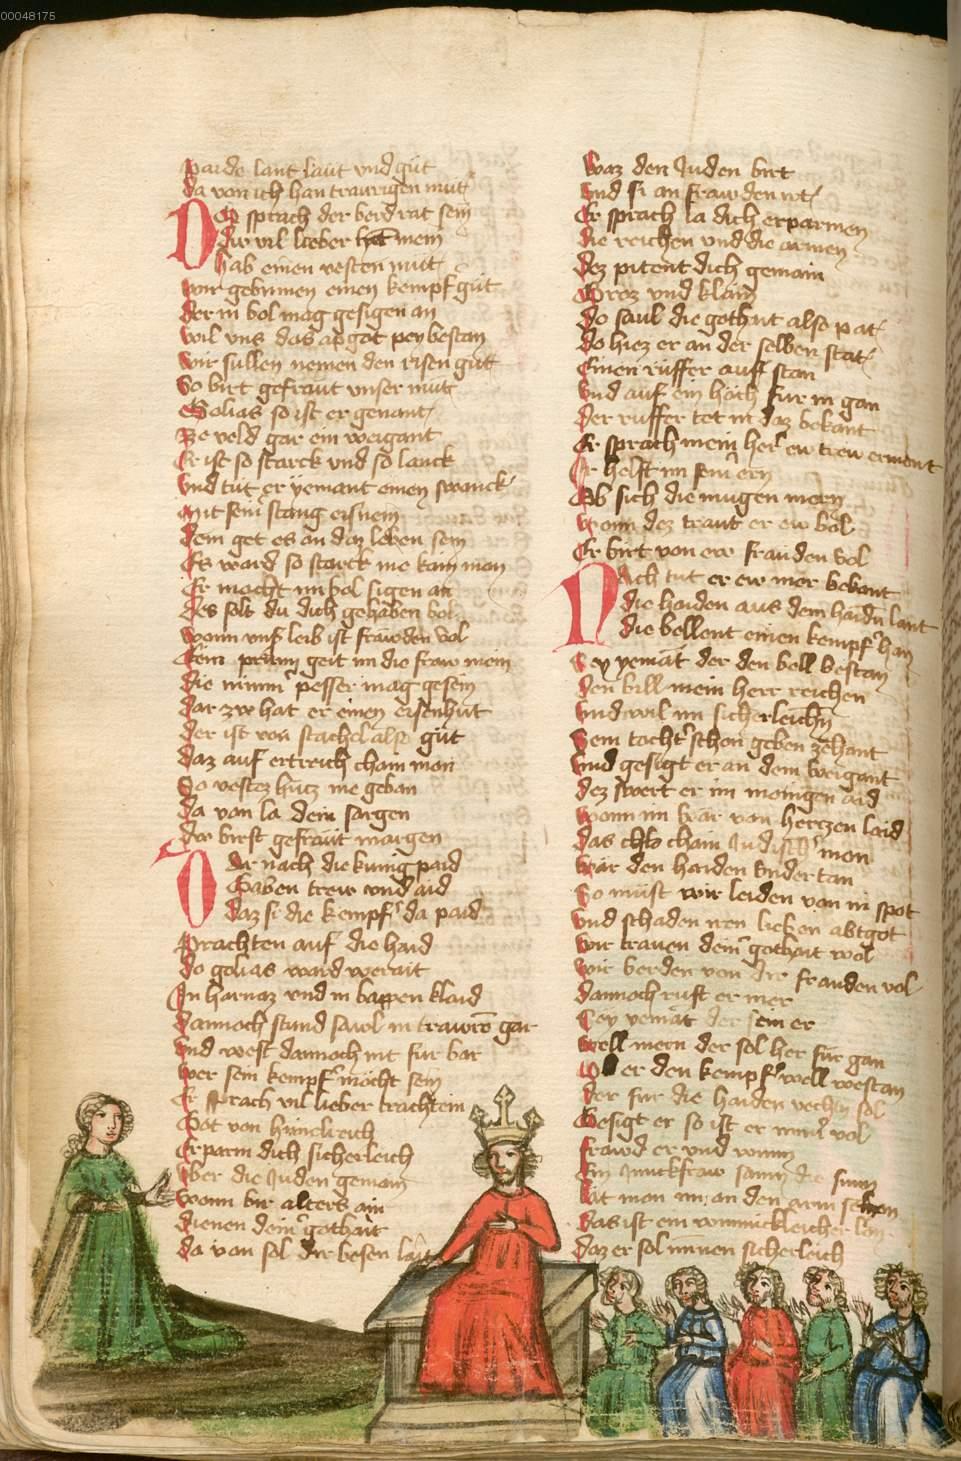 00048175
paide lant laut vnd gut
da von ich han traurigen mut
Der sprach der verdrat sein
dir vil lieber herr mein
hab einen vesten mut
wir gebinnen einen kempf gut
der in bol mag gesigen an
wil vns das apgot pey bestan
wir sullen nemen den risen gut
So birt gefraut vnser mut
Golias so ist er genant
Ze veld gar ein weigant
Er ist so starck vnd so lanck
vnd tut er yemant einen swanck
Mit sein stang eisnein
Dem get es an daz leben sein
Es ward so starck nie kain man
Er macht im bol sigen an
Des solt du dich gehaben bol
wann vnser leib ist frawden vol
Sein prunn geit im die fraw mein
die nimmer pesser mag gesein
Dar zw hat er einen eisenhut
der ist von stachel also gut
Daz auf ertreich cham man
So vestez hutz nie geban
Da von la dein sorgen
du birst gefraut margen
Dar nach die kunig paid
Gaben trew vnd aid
daz si die kempfer da paid
Prachten auf die haid
do golias ward werait
In harnaz vnd in bappen klaid
Dannoch stund sawl in trawren gar
vnd west dannoch nit fur bar
wer sein kempfer mocht sein
Er sprach vil lieber trachtein
Got von himelreich
Erparm dich sicherleich
vber die Juden gemain
wann bir alters ain
dienen deiner gothait
Da von sol dir besen lait
waz den Juden birt
vnd si an frawden irt
Er sprach la dich erparmen
die reichen vnd die armen
Dez pitent dich gemain
Groz vnd klain
Do saul die gothait also pat
do hiez er an der selben stat
Einen rüffer auff stan
vnd auf ein höch für in gan
Der ruffer tet in daz bekant
Er sprach mein her ew trew ermant
Ir helft im sein ern
Ob sich die mugen mern
wann dez traut er ew bol
Er birt von ew frauden vol
Nach tut er ew mer bekant
die haiden aus dem haidn lant
die bellent einen kempfer han
Sey yemāt der den bell bestan
den bill mein herr reichen
vnd wil im sicherleichn
Sein tochter schon geben zehant
vnd gesigt er an dem weigant
dez swert er im mainigen aid
wann im wär von herczen laid
das echto chain Judischer man
wär den haiden vnder tan
So müst wir leiden von in spot
vnd schaden iren lieben abtgot
wir trauen deiner gothait wol
wir berden von dir frauden vol
dannoch ruft er mer
Sey yemāt der sein er
well mern der sol her für gan
Ob er den kempfer well westan
der fur die haiden vechtn sol
Gesigt er so ist er immer vol
frawd er vnd wunn
Ein Junckfraw sam die sunn
Lat man im an den arm sehen
Das ist ein wunnickleicher
daz er sol innen sicherleich